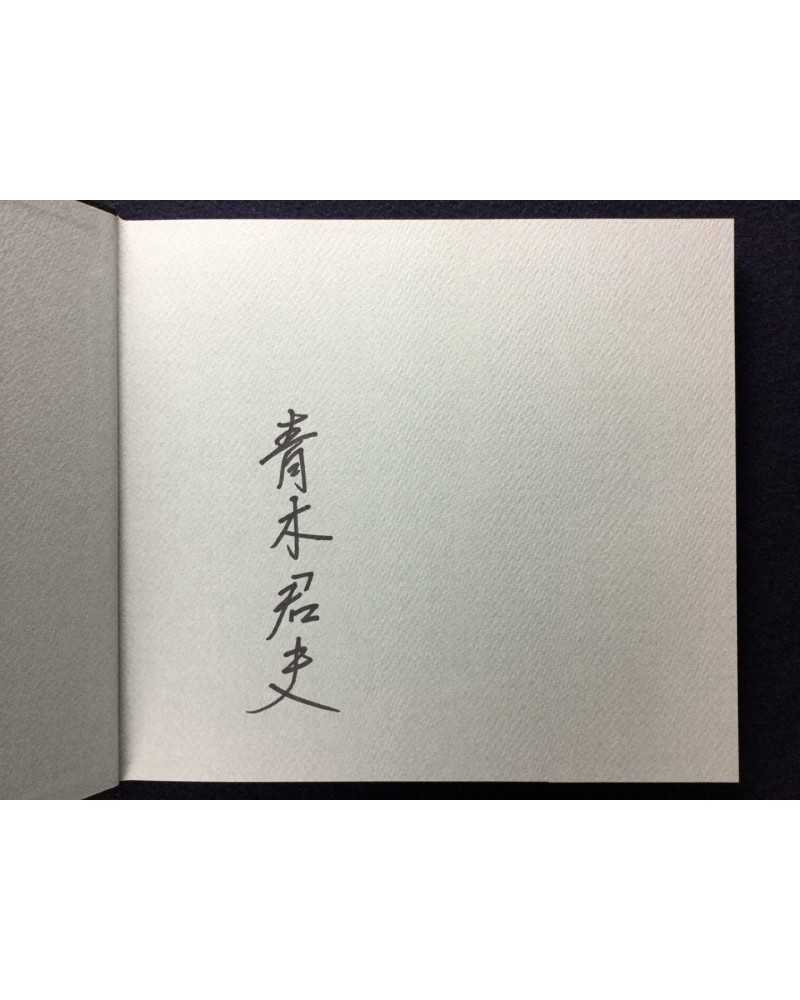 青木君史